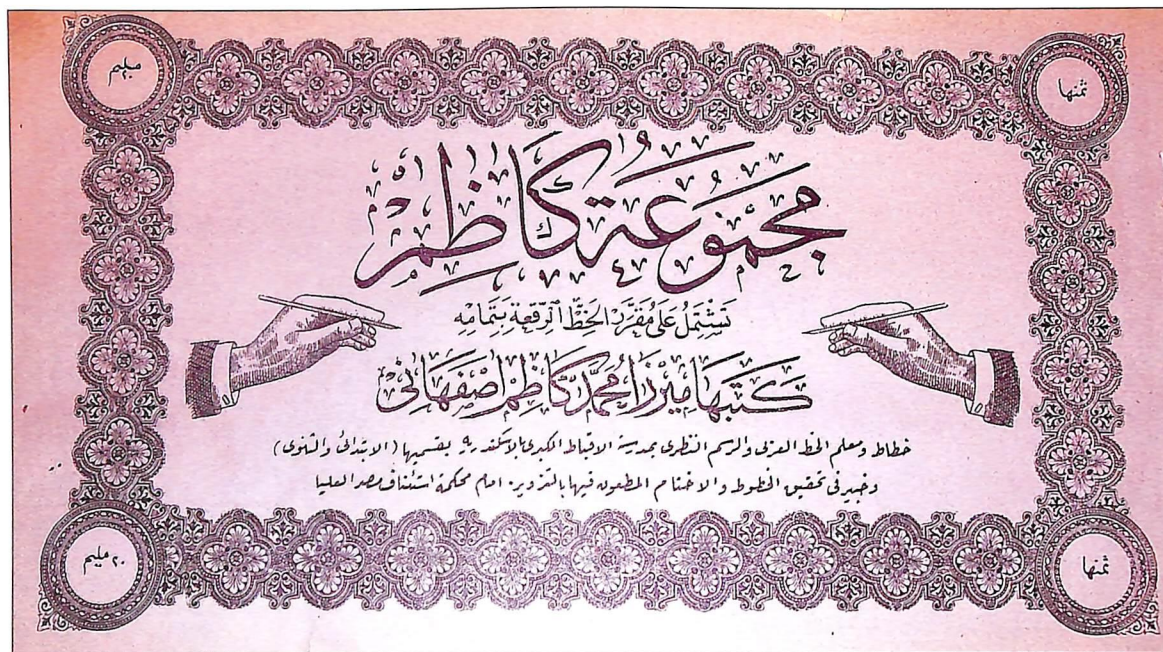 ثمنها
٢٠ مليم
مجموعة كاظم
تشتمل على مقرر الخط الرقعة بتمامه
كتبها ميرزا محمد كاظم اصفهاني
خطاط ومعلم الخط العربى والرسم النظرى بمدرسة الاقباط الكبرى بالاسكندرية بقسميها (الابتدائى والثنوى)
وخبير فى تحقيق الخطوط والاختام المطعون فيها بالتزوير. امام محكمة استئناف مصر العليا
ثمنها
٢٠ مليم